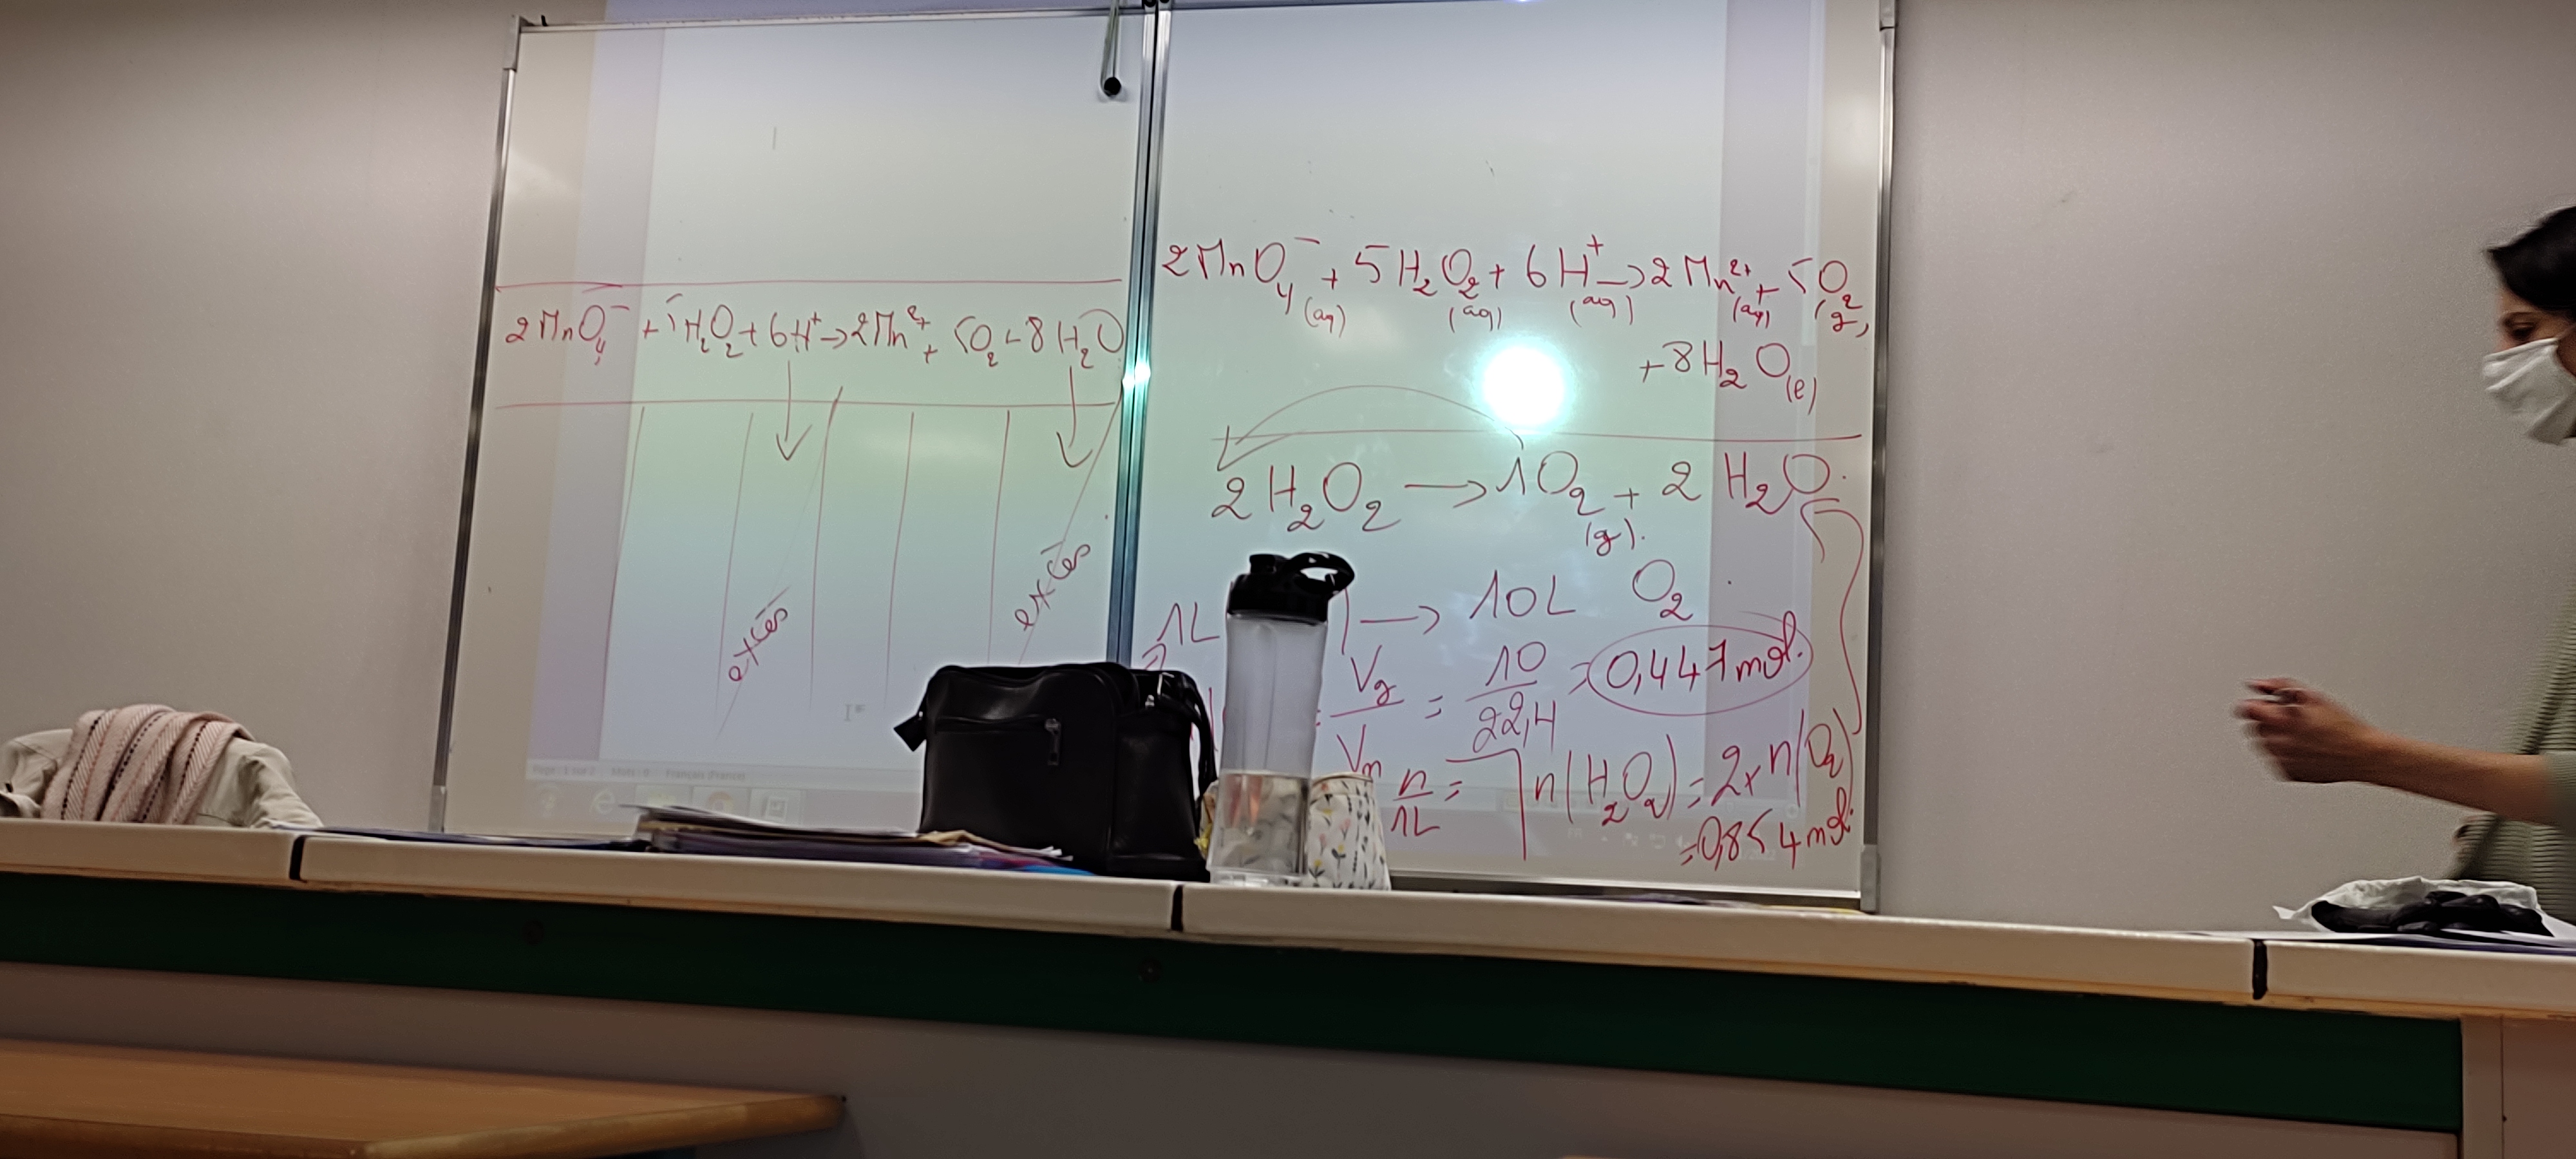 2MnO₄⁻ + 5H₂O₂ + 6H⁺ → 2Mn²⁺ + 5O₂ + 8H₂O
excès
excès
2MnO₄⁻(aq) + 5H₂O₂(aq) + 6H⁺(aq) → 2Mn²⁺(aq) + 5O₂(g)
+ 8H₂O(l)
2H₂O₂ → 1O₂(g) + 2H₂O
1L → 10L O₂
= Vg/Vm = 10/22,4 = 0,447 mol.
n/1L = n(H₂O₂) = 2x n(O₂)
= 0,854 mol.